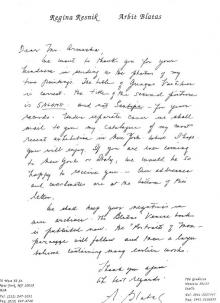 Regina Resnik Arbit Blatas
Dear Mr.
We want to thank you for your
kindness in sending us the photos of my
two paintings. The title of
is correct. The title of the second picture
is and not - for your
records. Under separate cover we shall
mail to you my catalogue of my most
recent exhibition in New York which I hope
you will enjoy. If you are ever coming
to New York or Italy, we would be so
happy to receive you. Our address
and coordinates are at the bottom of this
letter.
We shall keep your negatives in
our archives. The Blatas Venice book
is published now. The Portraits of Mont-
parnasse will follow and then a larger
volume containing many earlier works.
Thank you again
and best regards
A. Blatas
New York, NY
USA
Giudecca
Venezia
Italia